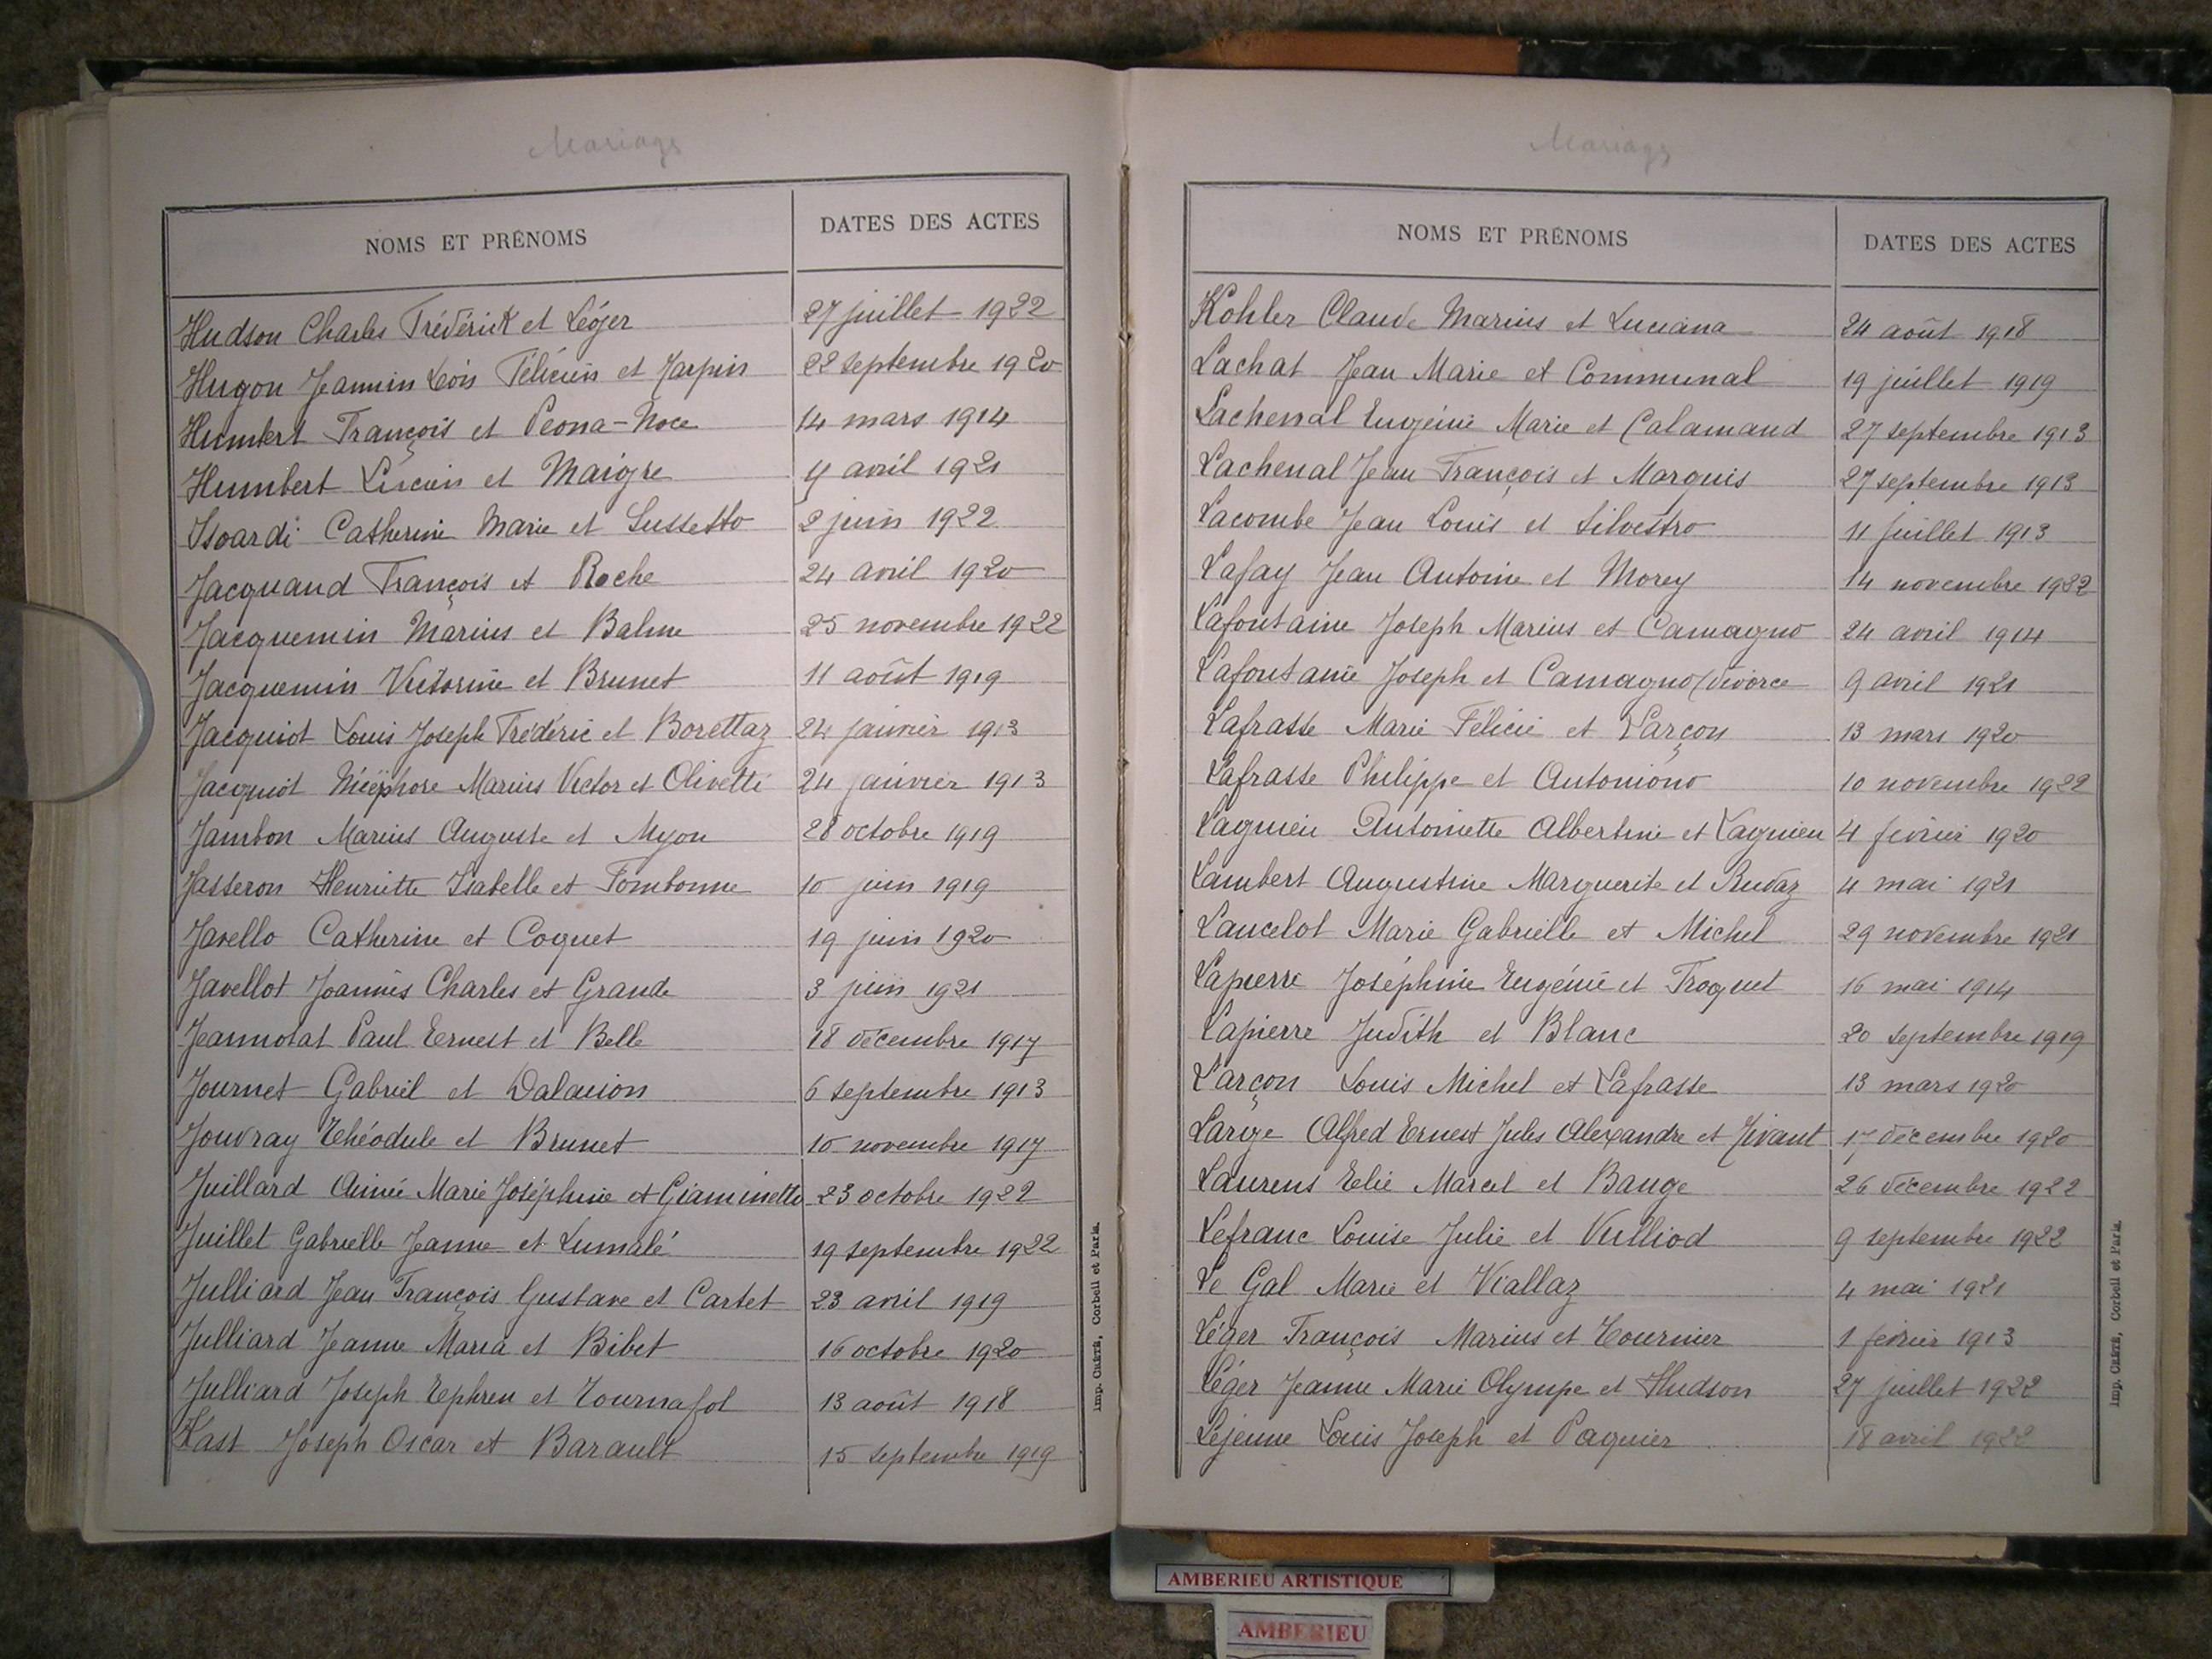 Mariages
NOMS ET PRÉNOMS
DATES DES ACTES
Hudson Charles Frédérick et Léger 27 juillet 1922
Hugon Jeannin Léon Félicien et Jarpin 22 septembre 1920
Humbert François et Peona-Noce 14 mars 1914
Humbert Lucien et Maigre 4 avril 1921
Isoardi Catherine Marie et Sussetto 2 juin 1922
Jacquand François et Roche 24 avril 1920
Jacquemin Marius et Balme 25 novembre 1922
Jacquemin Victorine et Brunet 11 août 1919
Jacquiot Louis Joseph Frédéric et Borettaz 24 janvier 1913
Jacquiot Nicéphore Marius Victor et Olivetti 24 janvier 1913
Jambon Marius Auguste et Myon 28 octobre 1919
Jasseron Henriette Isabelle et Fombonne 10 juin 1919
Javello Catherine et Coquet 19 juin 1920
Javellot Joannès Charles et Grande 3 juin 1921
Jeannotat Paul Ernest et Belle 18 décembre 1917
Journet Gabriel et Dalaison 6 septembre 1913
Jouvray Théodule et Brunet 10 novembre 1917
Juillard Aimée Marie Joséphine et Giaminetto 23 octobre 1922
Juillet Gabrielle Jeanne et Lumalé 19 septembre 1922
Julliard Jean François Gustave et Cartet 23 avril 1919
Julliard Jeanne Maria et Bibet 16 octobre 1920
Julliard Joseph Ephrem et Tournafol 13 août 1918
Kast Joseph Oscar et Barault 15 septembre 1919
Imp. CRÉTÉ, Corbeil et Paris.
Mariages
NOMS ET PRÉNOMS
DATES DES ACTES
Kohler Claude Marius et Luciana 24 août 1918
Lachat Jean Marie et Communal 19 juillet 1919
Lachenal Eugénie Marie et Calamand 27 septembre 1913
Lachenal Jean François et Marquis 27 septembre 1913
Lacombe Jean Louis et Silvestro 11 juillet 1913
Lafay Jean Antoine et Morey 14 novembre 1922
Lafontaine Joseph Marius et Camagno 24 avril 1914
Lafontaine Joseph et Camagno (divorce 9 avril 1921
Lafrasse Marie Félicie et Larçon 13 mars 1920
Lafrasse Philippe et Antoniono 10 novembre 1922
Lagnieu Antoinette Albertine et Lagnieu 4 février 1920
Lambert Augustine Marguerite et Rudaz 4 mai 1921
Lancelot Marie Gabrielle et Michel 29 novembre 1921
Lapierre Joséphine Eugénie et Troquet 16 mai 1914
Lapierre Judith et Blanc 20 septembre 1919
Larçon Louis Michel et Lafrasse 13 mars 1920
Large Alfred Ernest Jules Alexandre et Jivant 17 décembre 1920
Laurens Elie Marcel et Bauge 26 décembre 1922
Lefranc Louise Julie et Vulliod 9 septembre 1922
Le Gal Marie et Viallaz 4 mai 1921
Léger François Marius et Tournier 1 février 1913
Léger Jeanne Marie Olympe et Hudson 27 juillet 1922
Lejeune Louis Joseph et Paquier 18 avril 1922
Imp. CRÉTÉ, Corbeil et Paris.
AMBERIEU ARTISTIQUE
AMBERIEU